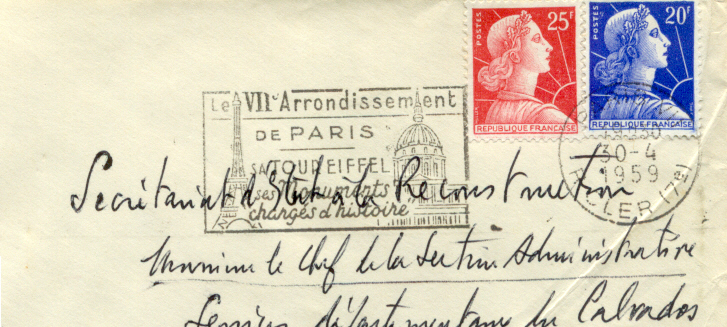 POSTES 25F
REPUBLIQUE FRANÇAISE
POSTES 20F
REPUBLIQUE FRANÇAISE
Le VIIe Arrondissement
DE PARIS
SA TOUR EIFFEL
ses Monuments
chargés d'histoire
30-4
1959
CLER (7e)
Secrétariat d'Etat à la Reconstruction
Monsieur le Chef de la Section Administrative
Services départementaux du Calvados